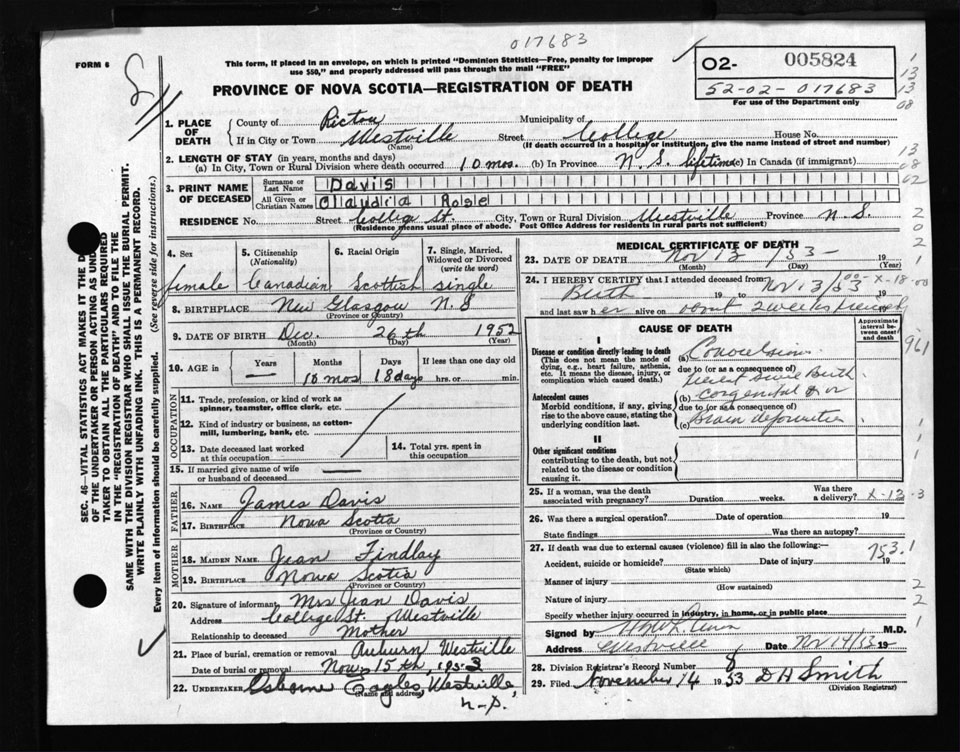 017683
FORM 6
This form, if placed in an envelope, on which is printed "Dominion Statistics—Free, penalty for improper
use $50," and properly addressed will pass through the mail "FREE"
O2- 005824
52-02-017683
For use of the Department only
PROVINCE OF NOVA SCOTIA—REGISTRATION OF DEATH
1. PLACE OF DEATH
County of Pictou Municipality of
If in City or Town Westville Street College House No.
(Name) (If death occurred in a hospital or institution, give the name instead of street and number)
2. LENGTH OF STAY (in years, months and days)
(a) In City, Town or Rural Division where death occurred 10 mos. (b) In Province N.S. lifetime (c) In Canada (if immigrant)
3. PRINT NAME OF DECEASED
Surname or Last Name Davis
All Given or Christian Names Claudia Rose
RESIDENCE No. Street College St. City, Town or Rural Division Westville Province N.S.
(Residence means usual place of abode. Post Office Address for residents in rural parts not sufficient)
4. Sex female
5. Citizenship (Nationality) Canadian
6. Racial Origin Scottish
7. Single, Married, Widowed or Divorced (write the word) single
8. BIRTHPLACE New Glasgow N.S
(Province or Country)
9. DATE OF BIRTH Dec. 26th 1952
(Month) (Day) (Year)
10. AGE in Years — Months 10 mos Days 18 days If less than one day old hrs. or min.
OCCUPATION
11. Trade, profession, or kind of work as spinner, teamster, office clerk, etc.
12. Kind of industry or business, as cotton-mill, lumbering, bank, etc.
13. Date deceased last worked at this occupation
14. Total yrs. spent in this occupation
15. If married give name of wife or husband of deceased —
FATHER
16. NAME James Davis
17. BIRTHPLACE Nova Scotia
(Province or Country)
MOTHER
18. MAIDEN NAME Jean Findlay
19. BIRTHPLACE Nova Scotia
(Province or Country)
20. Signature of informant Mrs Jean Davis
Address College St. Westville
Relationship to deceased Mother
21. Place of burial, cremation or removal Auburn Westville
Date of burial or removal Nov 15th 1953
22. UNDERTAKER Osborne Eagles, Westville,
(Name and address)
MEDICAL CERTIFICATE OF DEATH
23. DATE OF DEATH Nov 13 /53 19
(Month) (Day) (Year)
24. I HEREBY CERTIFY that I attended deceased from
Birth 19 to Nov 13/53 19
and last saw her alive on about 2 weeks
CAUSE OF DEATH
Approximate interval between onset and death
I
Disease or condition directly leading to death
(This does not mean the mode of dying, e.g., heart failure, asthenia, etc. It means the disease, injury, or complication which caused death.)
(a) Convulsions
due to (or as a consequence of)
present since Birth
Antecedent causes
Morbid conditions, if any, giving rise to the above cause, stating the underlying condition last.
(b) congenital
due to (or as a consequence of)
(c) Brain
II
Other significant conditions
contributing to the death, but not related to the disease or condition causing it.
25. If a woman, was the death associated with pregnancy? Duration weeks. Was there a delivery? X-12-3
26. Was there a surgical operation? Date of operation 19
State findings Was there an autopsy?
27. If death was due to external causes (violence) fill in also the following:— 753.1
Accident, suicide or homicide? Date of injury 19
(State which)
Manner of injury
(How sustained)
Nature of injury
Specify whether injury occurred in industry, in home, or in public place
Signed by M.D.
Address Westville Date Nov 14/53 19
28. Division Registrar's Record Number 8
29. Filed November 14 1953 D H Smith
(Division Registrar)
SEC. 46—VITAL STATISTICS ACT MAKES IT THE
OF THE UNDERTAKER OR PERSON ACTING AS UNDERTAKER TO OBTAIN ALL THE PARTICULARS REQUIRED
IN THE "REGISTRATION OF DEATH" AND TO FILE THE
SAME WITH THE DIVISION REGISTRAR WHO SHALL ISSUE THE BURIAL PERMIT.
WRITE PLAINLY WITH UNFADING INK. THIS IS A PERMANENT RECORD.
Every item of information should be carefully supplied. (See reverse side for instructions.)